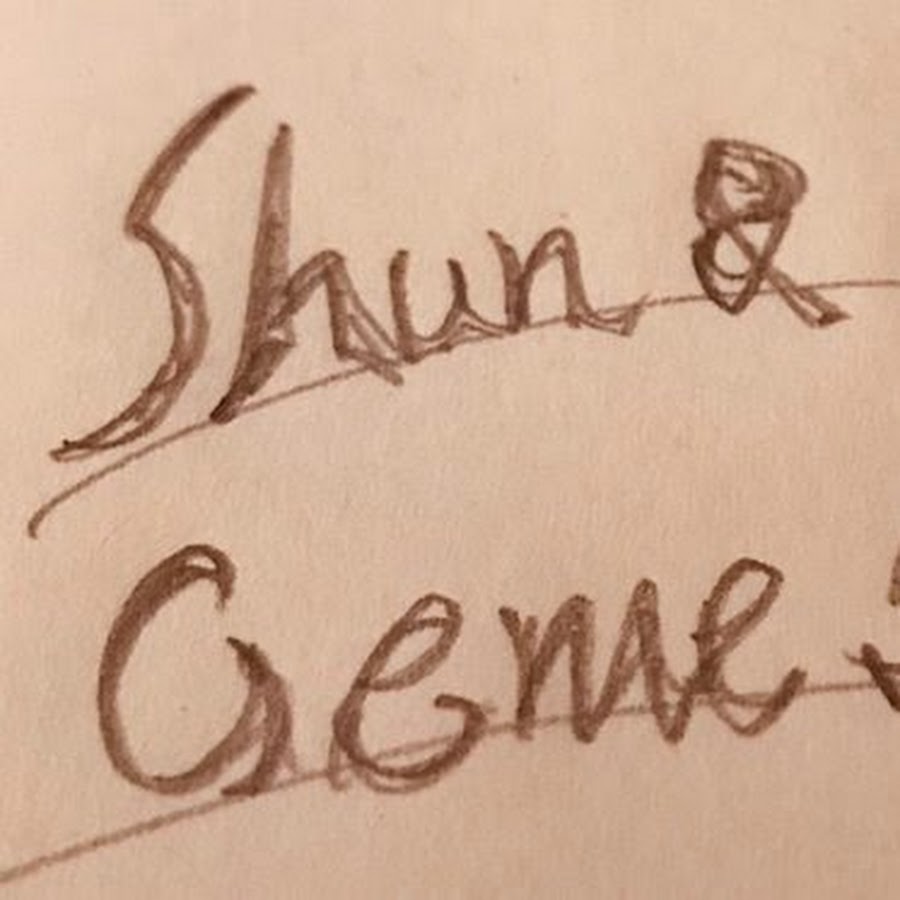 Shun &
Geme